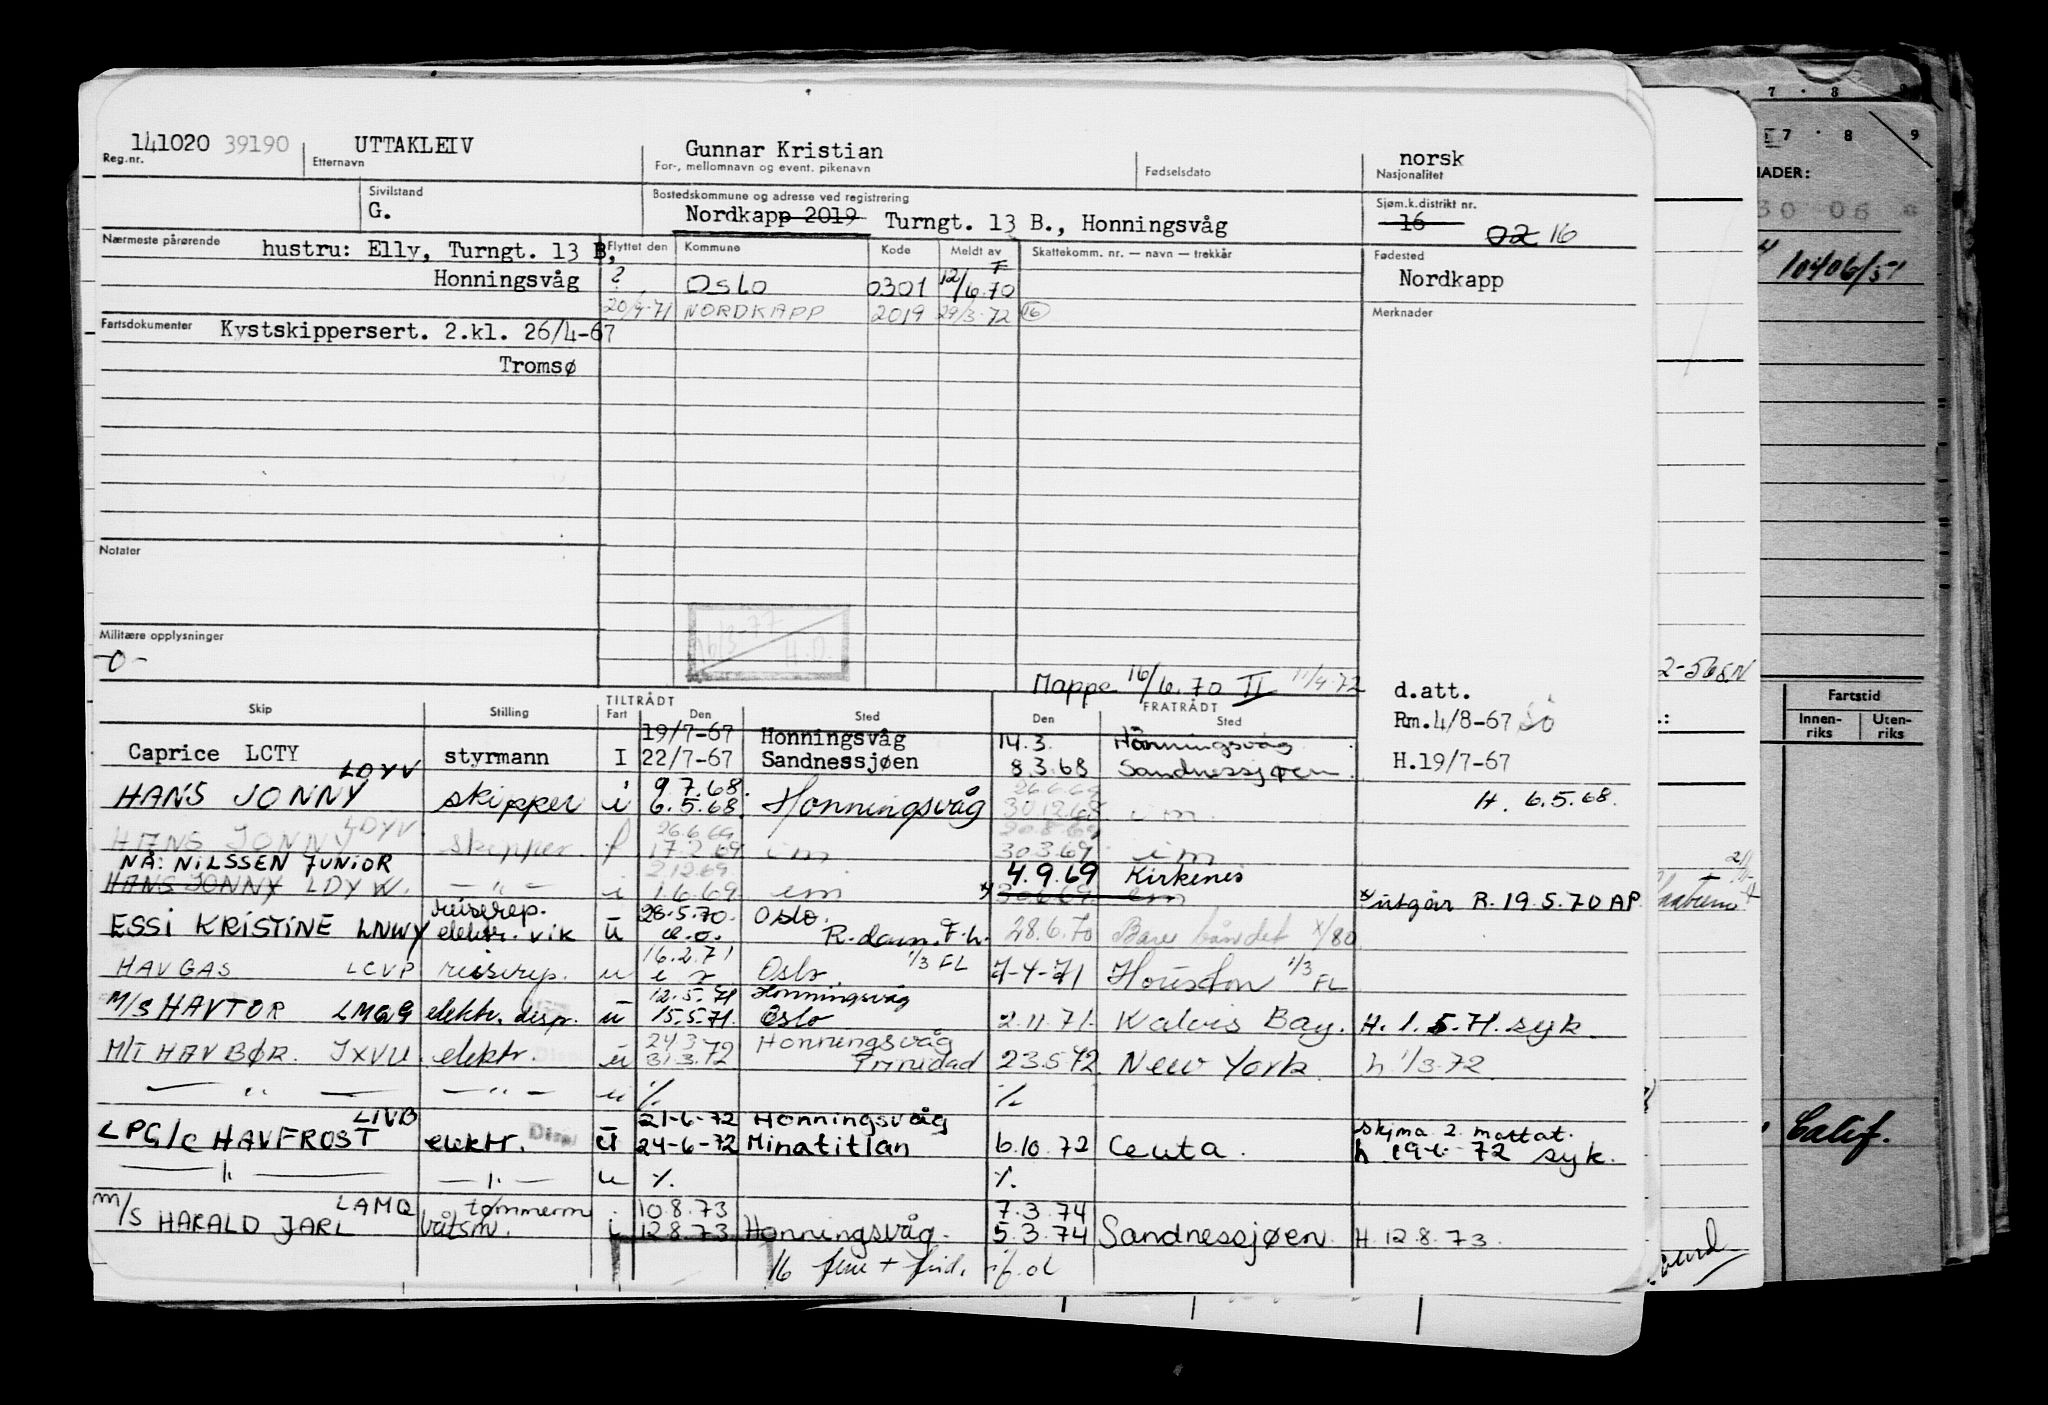 141020 39190 UTTAKLEIV Gunnar Kristian norsk
Reg.nr. Etternavn For-, mellomnavn og event. pikenavn Fødselsdato Nasjonalitet
Sivilstand Bostedskommune og adresse ved registrering Sjøm.k.distrikt nr.
G. Nordkapp 2019 Turngt. 13 B., Honningsvåg 16 02 16
Nærmeste pårørende hustru: Elly, Turngt. 13 B, Flyttet den Kommune Kode Meldt av Skattekomm. nr. — navn — trekkår Fødested
Honningsvåg ? Oslo 0301 12/6.70 Nordkapp
20/9.71 NORDKAPP 2019 29/3.72 16 Merknader
Fartsdokumenter Kystskippersert. 2.kl. 26/4-67
Tromsø
Notater
16/3-77 H.O.
Militære opplysninger
-0-
Mappe 16/6.70 II 11/4.72 d.att.
Skip Stilling TILTRÅDT Fart Den Sted FRATRÅDT Den Sted Rm.4/8-67
19/7-67 Honningsvåg 14.3. Honningsvåg
Caprice LCTY styrmann I 22/7-67 Sandnessjøen 8.3.68 Sandnessjøen H.19/7-67
LDYV 9.7.68. 26.6.69
HANS JONNY skipper i 6.5.68. Honningsvåg 30.12.68 im. H. 6.5.68.
LDYV 26.6.69 20.8.69
HANS JONNY skipper f 17.2.69 im 30.3.69 im
NÅ: NILSSEN JUNIOR 2.12.69. 4.9.69 Kirkenes
HANS JONNY LDYW. — " — i 1.6.69 im x) 30.6.69 em x) utgår R. 19.5.70 AP.
reiserep. 26.5.70. Oslo.
ESSI KRISTINE LNWY elektr. vik u R.dam. F.h. 28.6.70 Bare båndet x/80
16.2.71 1/3 FL
HAVGAS LCVP reiserep. u Oslo 7-4-71 Houston 1/3 FL
12.5.71 Honningsvåg
M/S HAVTOR LMQG elektr. disp. u 15.5.71. Oslo 2.11.71. Walvis Bay. H. 1.5.71. syk
24.3 Honningsvåg
M/T HAVBØR. JXVU elektr. Disp. u 31.3.72 Trinidad 23.5.72 New York. h 1/3.72.
— " — — " — u ./. ./.
LIVB 21-6-72 Honningsvåg skjma. 2. mottat.
LPG/C HAVFROST elektr. Disp. u 24-6-72 Minatitlan 6.10.72 Ceuta. h 19-6-72 syk.
— " — — " — u ./. ./.
LAMQ tømmerm. 10.8.73 7.3.74
m/s HARALD JARL båtsm. i 12.8.73 Honningsvåg. 5.3.74 Sandnessjøen. H. 12.8.73.
7 · 8 9
NADER:
30 06
10406/51
2-568N
Fartstid
Innen-riks Uten-riks
Calif.